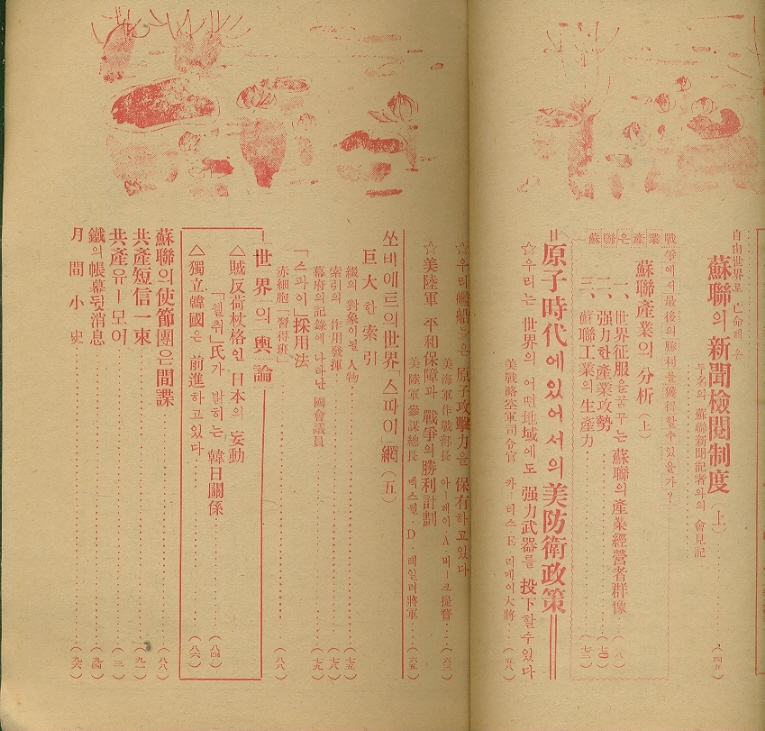 自由世界로 亡命해 온
蘇聯의 新聞檢閱制度(上)
두名의 蘇聯新聞記者와의 會見記
戰爭에서 最後의 勝利를 獲得할수 있을가?
蘇聯은 産業
蘇聯產業의 分析(上)
一、世界征服을 꿈꾸는 蘇聯의 產業經營者群像
二、强力한 產業攻勢
三、蘇聯工業의 生產力
原子時代에 있어서의 美防衛政策
☆우리는 世界의 어떤地域에도 强力武器를 投下할수있다
美戰略空軍司令官 카ー티스E 리메이大將
☆우리艦船들은 原子攻擊力을 保有하고있다
美海軍作戰部長 아ー레이·A·버ー크提督
☆美陸軍 平和保障과 戰爭의 勝利計劃
美陸軍參謀總長 맥스웰·D·테일러將軍
쏘바에트의世界「스파이」網(五)
巨大한 索引
綴의 對象이될 人物
索引의 作用發揮
幕府의記錄에 나타난 國會議員
「스파이」採用法
赤細胞「習得班」(八八)
世界의 輿論
△賊反荷杖格인 日本의 妄動
「월취」氏가 밝히는 韓日關係(八四)
△獨立韓國은 前進하고있다(八六)
蘇聯의 使節團은 間諜(八八)
共產短信一束(九一)
共產유ー모어
鐵의帳幕뒷消息(九四)
月間小史(九六)